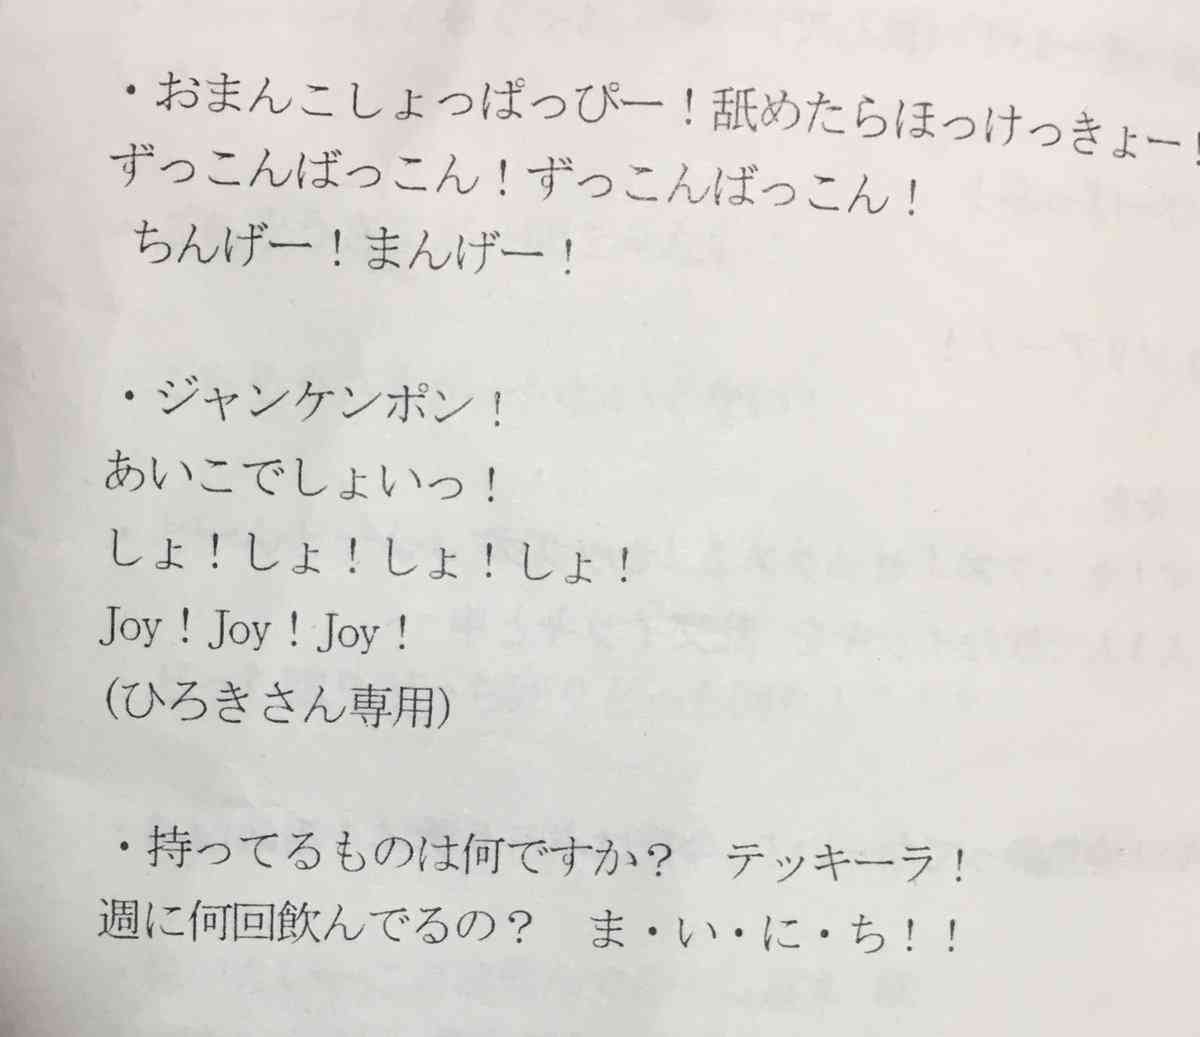 ・おまんこしょっぱっぴー！舐めたらほっけっきょー！
ずっこんばっこん！ずっこんばっこん！
ちんげー！まんげー！
・ジャンケンポン！
あいこでしょいっ！
しょ！しょ！しょ！しょ！
Joy！Joy！Joy！
(ひろきさん専用)
・持ってるものは何ですか？　テッキーラ！
週に何回飲んでるの？　ま・い・に・ち！！